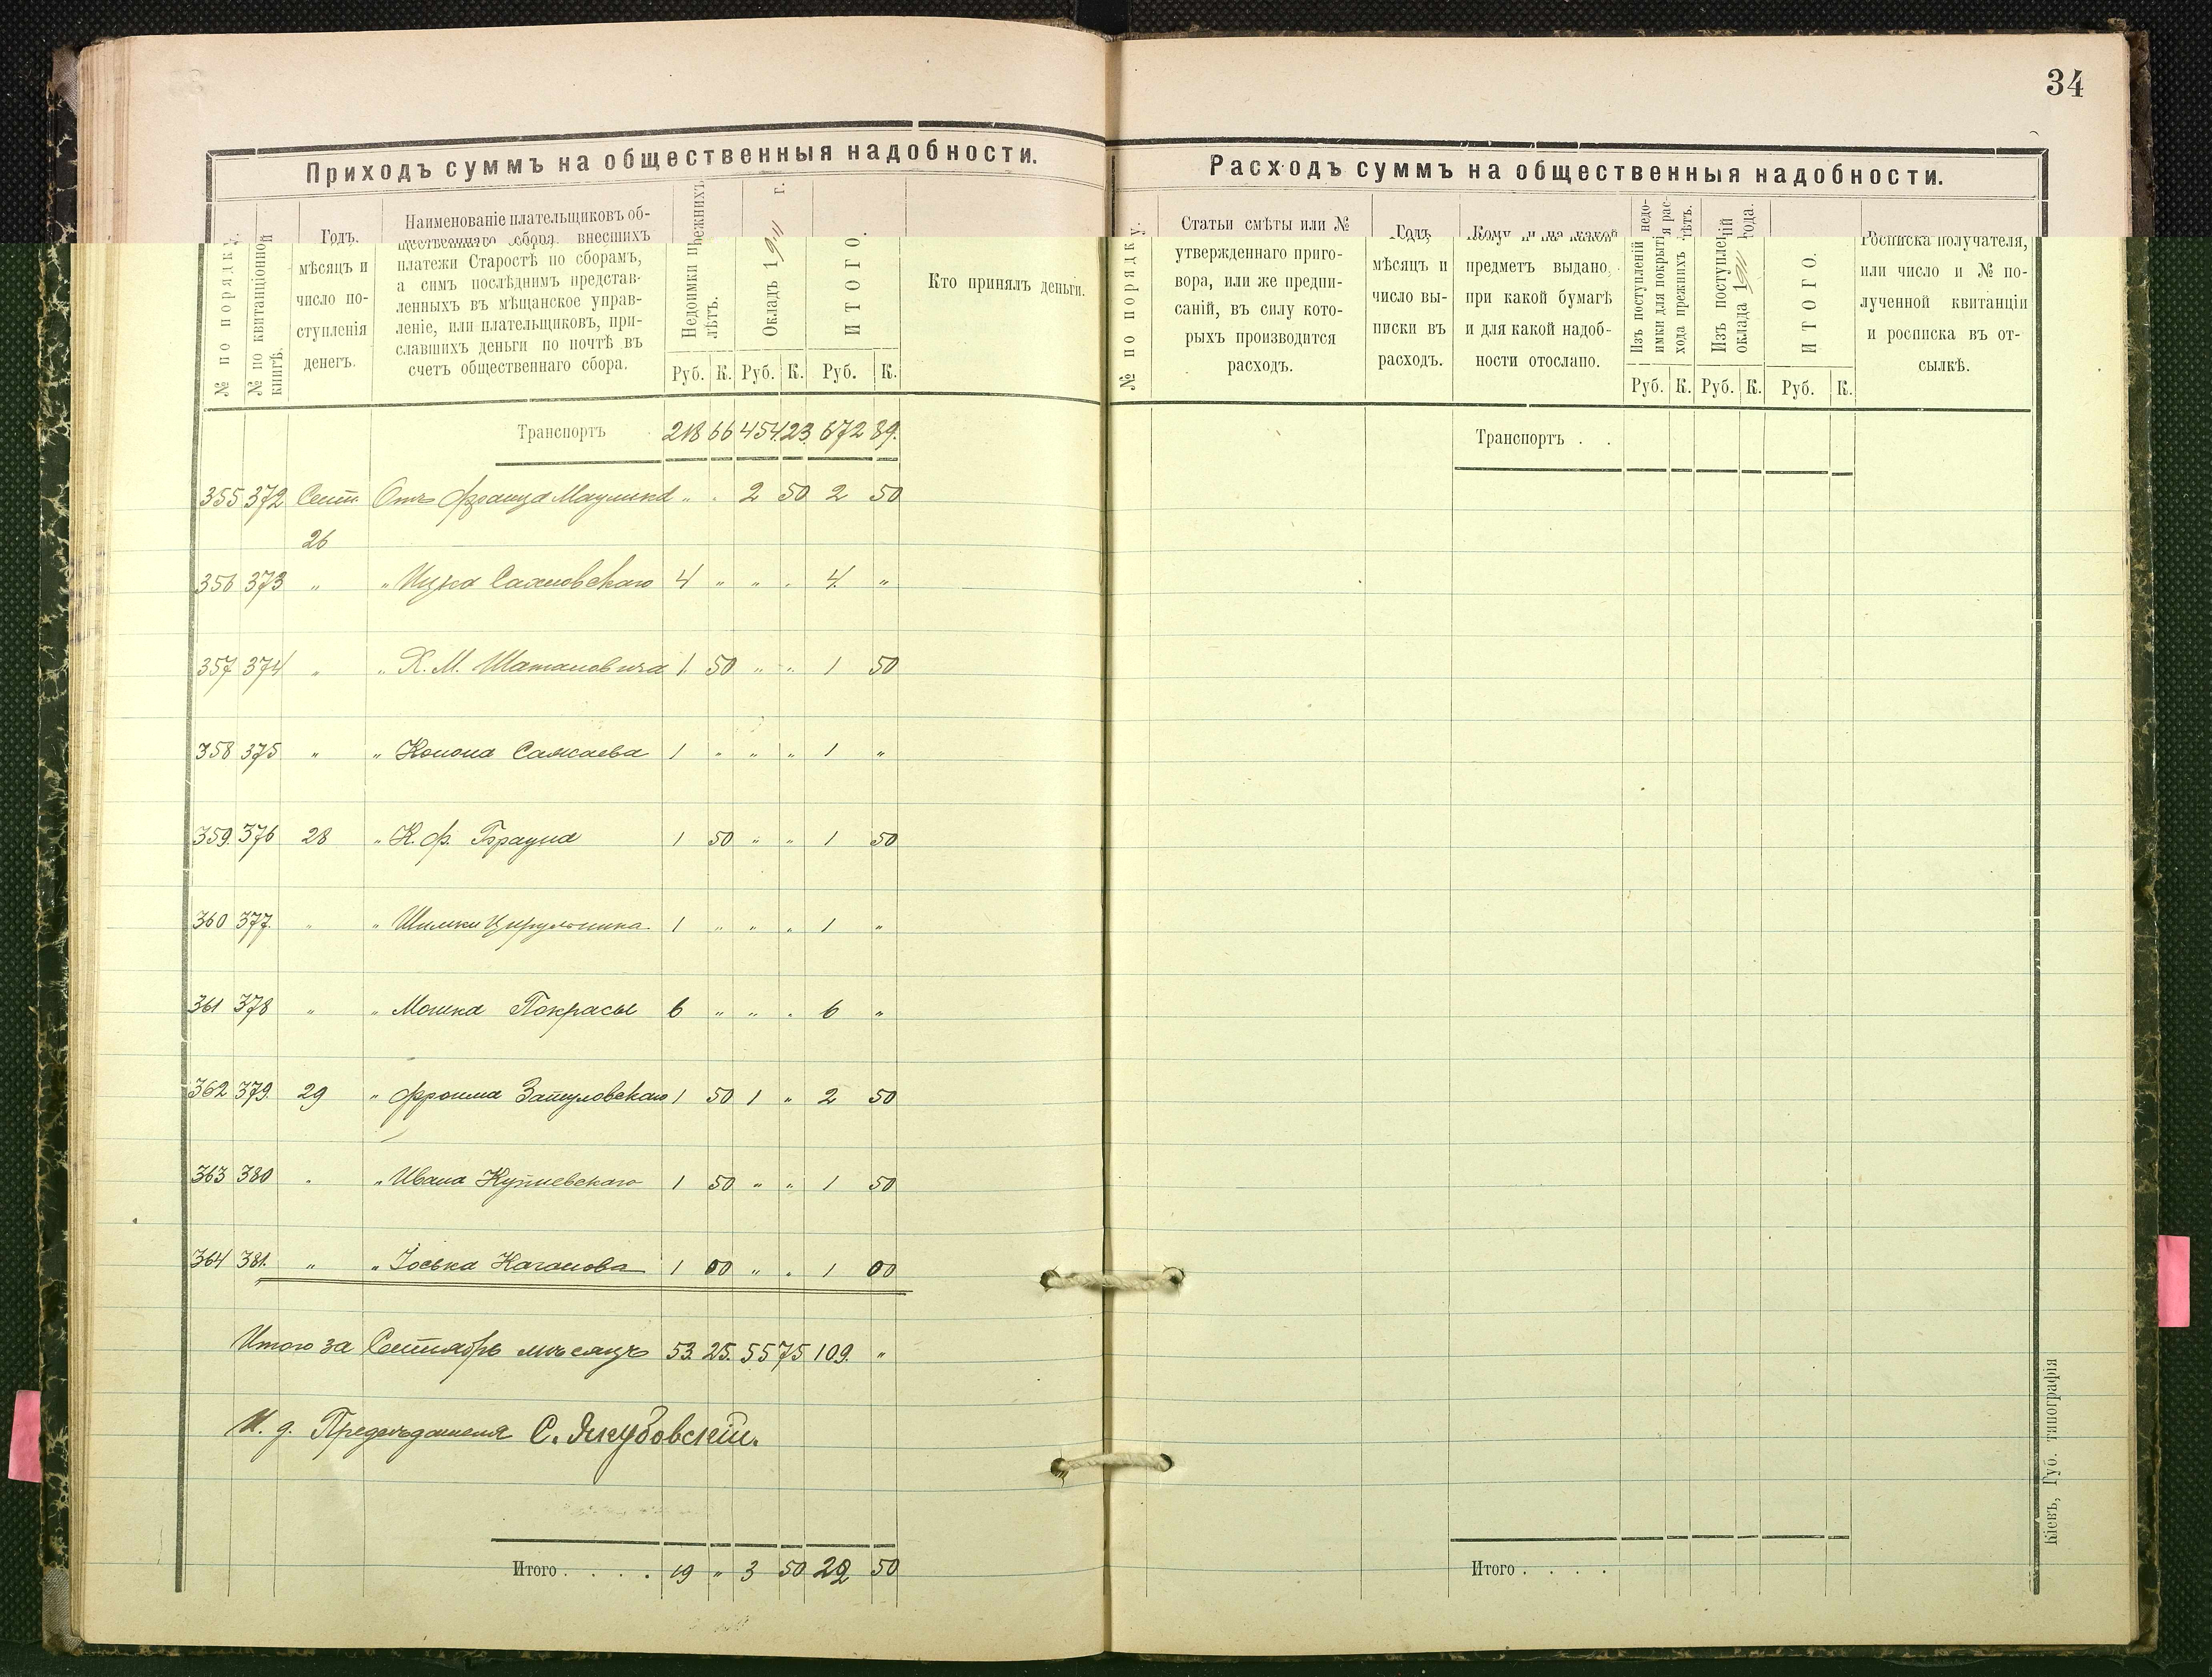 34
Приходъ суммъ на общественныя надобности.
№ по порядку.
№ по квитанціонной книгѣ.
Годъ,
мѣсяцъ и
число по-
ступленія
денегъ.
Наименованіе плательщиковъ об-
щественнаго сбора, внесшихъ
платежи Старостѣ по сборамъ,
а симъ послѣднимъ представ-
ленныхъ въ мѣщанское управ-
леніе, или плательщиковъ, при-
славшихъ деньги по почтѣ въ
счетъ общественнаго сбора.
Недоимки прежнихъ
лѣтъ.
Окладъ 1911 г.
ИТОГО.
Кто принялъ деньги.
Руб. К. Руб. К. Руб. К.
Транспортъ 218 66 454 23 672 89.
355 372 Сент. Отъ Франца Маулика " " 2 50 2 50
26
356 373 " " Ицка Сахновскаго 4 " " " 4 "
357 374 " " Х. М. Шатановича 1 50 " " 1 50
358 375 " " Конона Сажаева 1 " " " 1 "
359 376 28 " К. Ф. Брауна 1 50 " " 1 50
360 377 " " Шимки Цирульника 1 " " " 1 "
361 378 " " Мошка Покрасы 6 " " " 6 "
362 379 29 " Фроима Затуловскаго 1 50 1 " 2 50
363 380 " " Ивана Купчевскаго 1 50 " " 1 50
364 381 " " Іоська Каганова 1 00 " " 1 00
Итого за Сентябрь мѣсяцъ 53 25 55 75 109 "
И. д. Предсѣдателя С. Якубовскій.
Итого . . . . 19 " 3 50 22 50
Расходъ суммъ на общественныя надобности.
№ по порядку.
Статьи смѣты или №
утвержденнаго приго-
вора, или же предпи-
саній, въ силу кото-
рыхъ производится
расходъ.
Годъ,
мѣсяцъ и
число вы-
писки въ
расходъ.
Кому и на какой
предметъ выдано,
при какой бумагѣ
и для какой надоб-
ности отослано.
Изъ поступленій недо-
имки для покрытія рас-
хода прежнихъ лѣтъ.
Изъ поступленій
оклада 1911 года.
ИТОГО.
Росписка получателя,
или число и № по-
лученной квитанціи
и росписка въ от-
сылкѣ.
Руб. К. Руб. К. Руб. К.
Транспортъ . .
Итого . . . .
Кіевъ, Губ. типографія